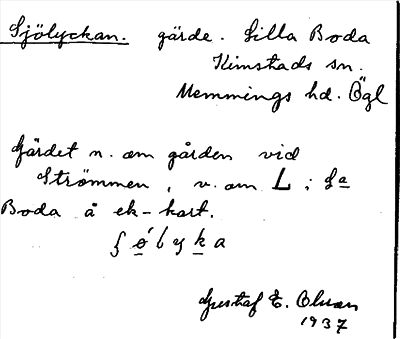 Sjölyckan. gärde. Lilla Boda
Kimstads sn.
Memmings hd. Ögl
Gärdet n. om gården vid
Strömmen, v. om L i La
Boda å ek-kart.
Gustaf E. Olsson
1937